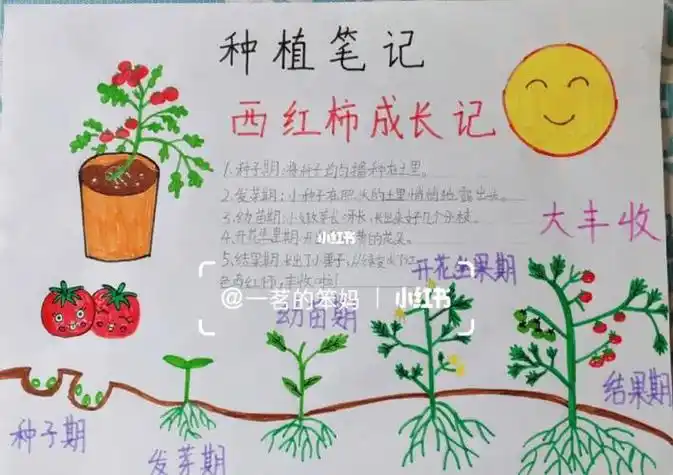 种植笔记
西红柿成长记
1.种子期:将种子均匀播种在土里。
2.发芽期:小种子在肥沃的土里悄悄地露出头。
3.幼苗期:
4.开花坐果期:开
小红书
5.结果期:长出了小果子,从绿变成了红
色西红柿,丰收啦!
大丰收
开花坐果期
@一茗的笨妈 | 小红书
幼苗期
结果期
种子期
发芽期